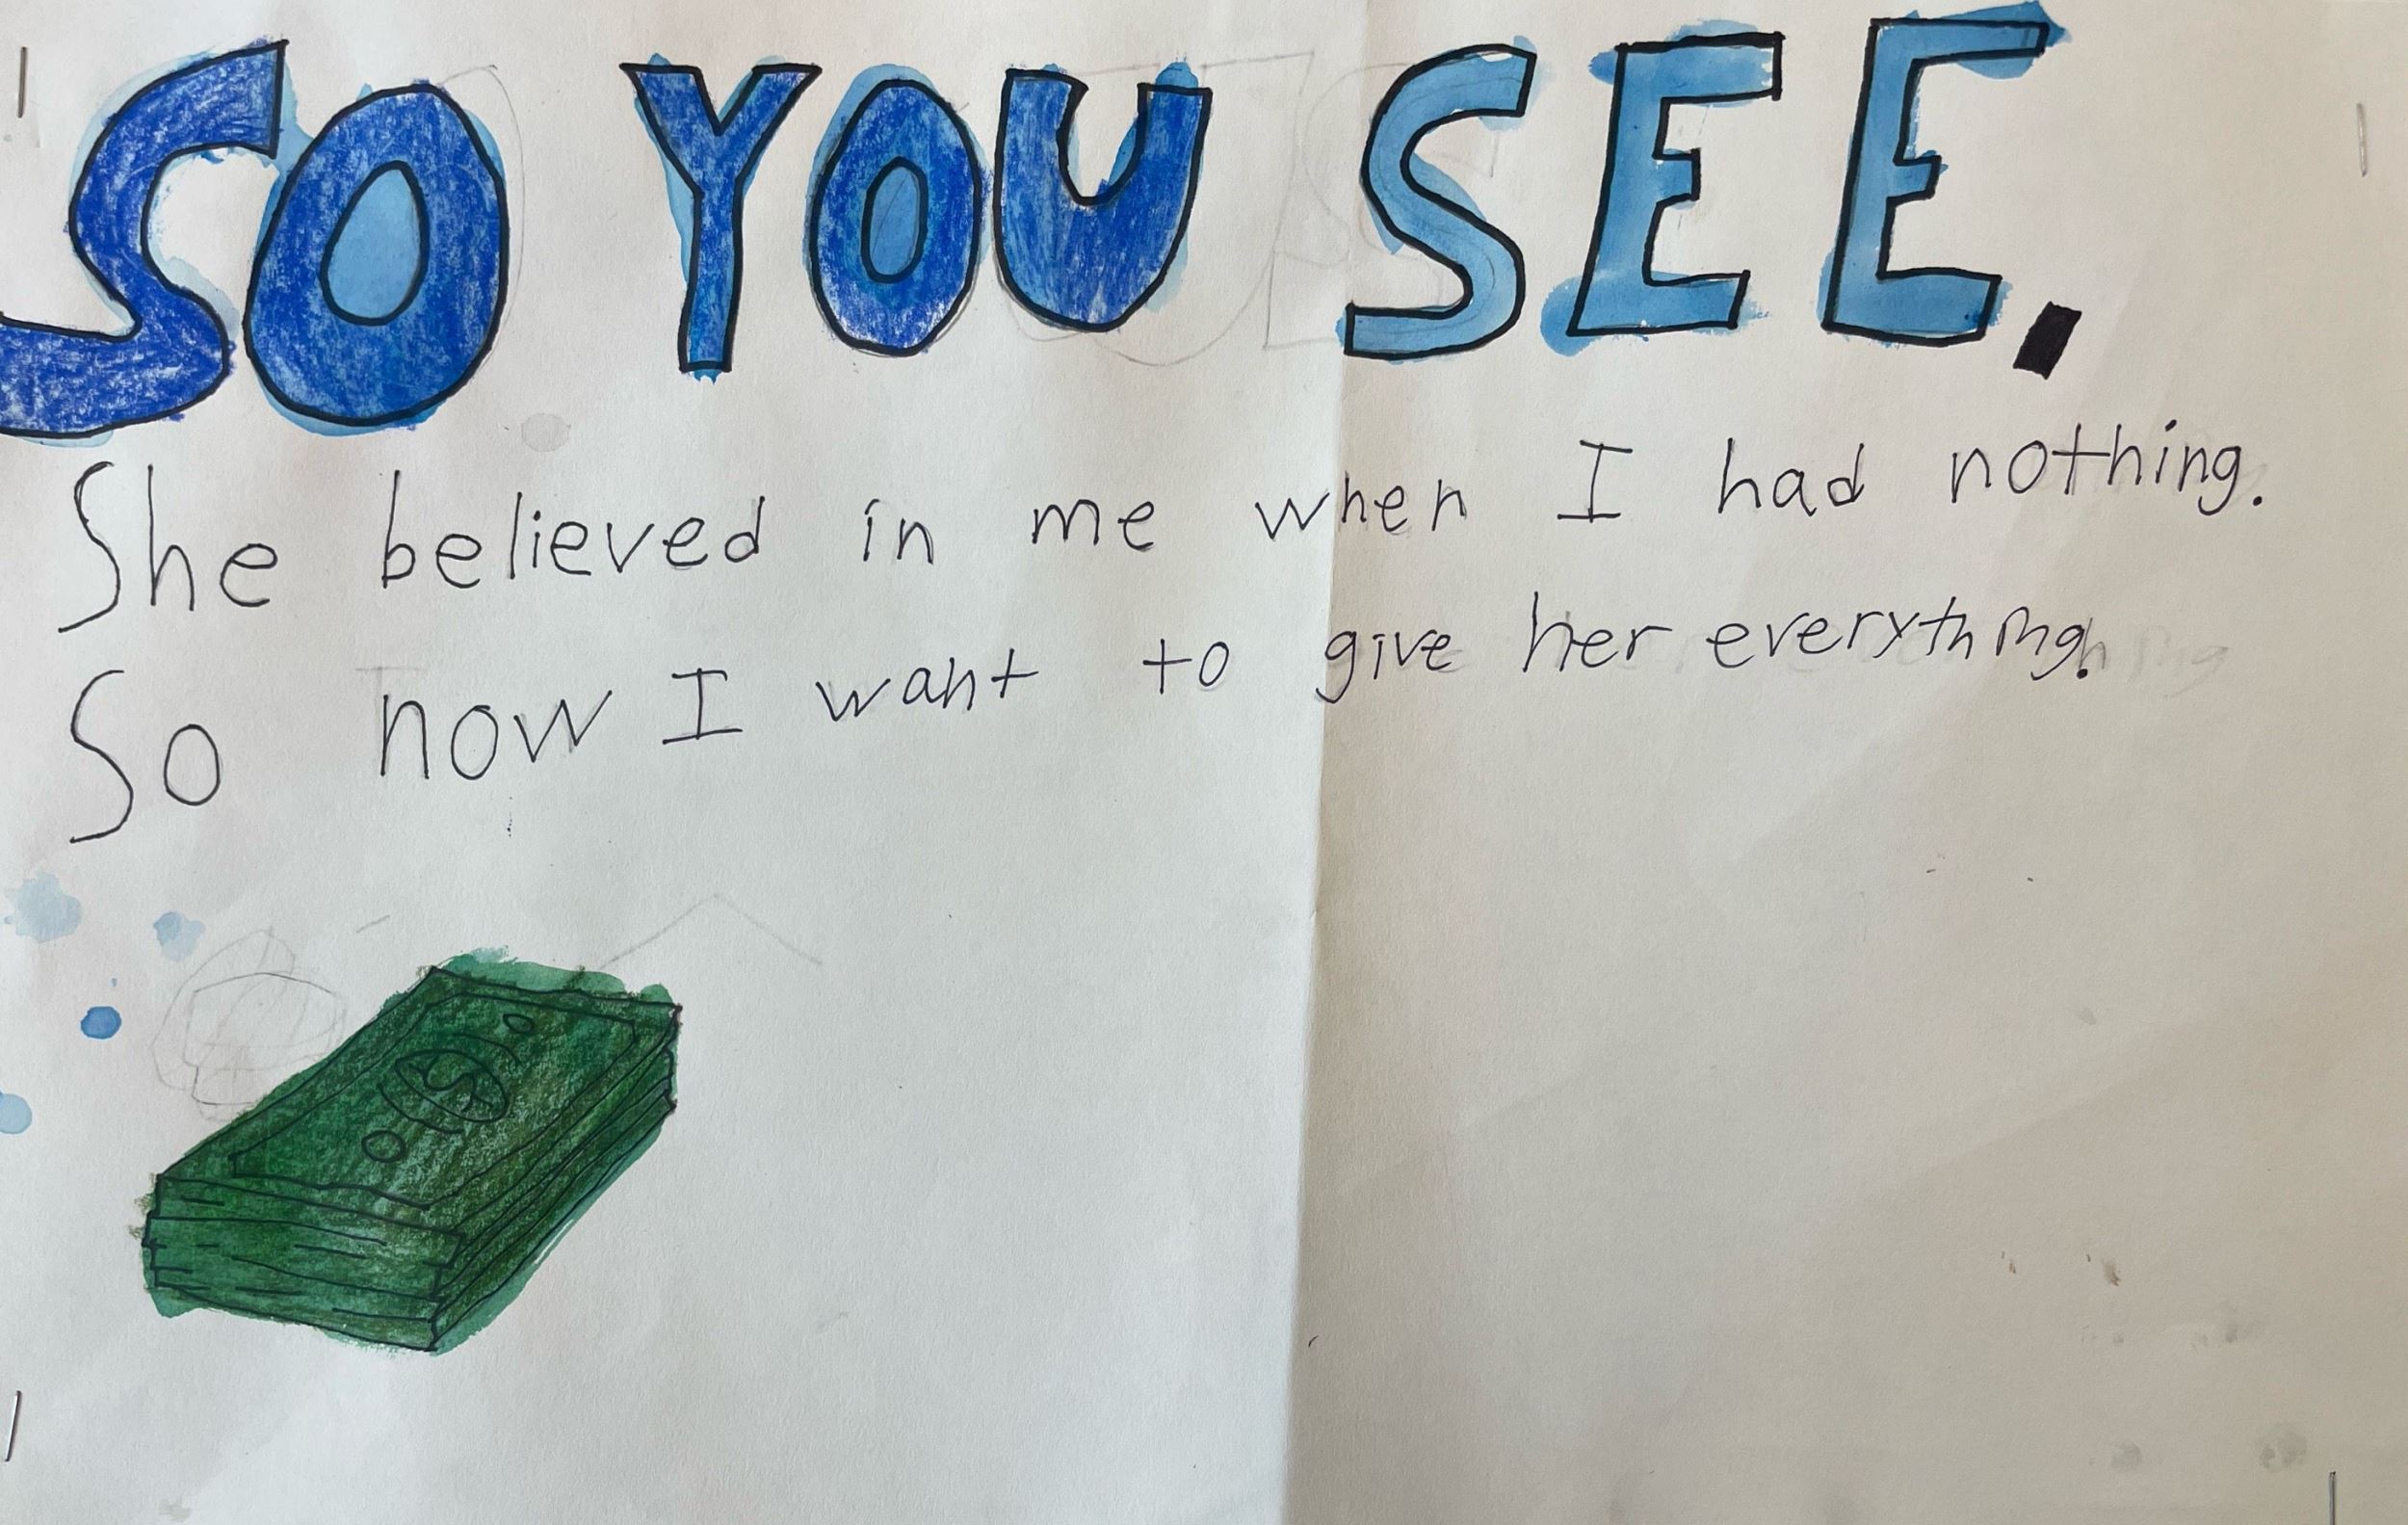 SO YOU SEE.
She believed in me when I had nothing.
So now I want to give her everything.
$